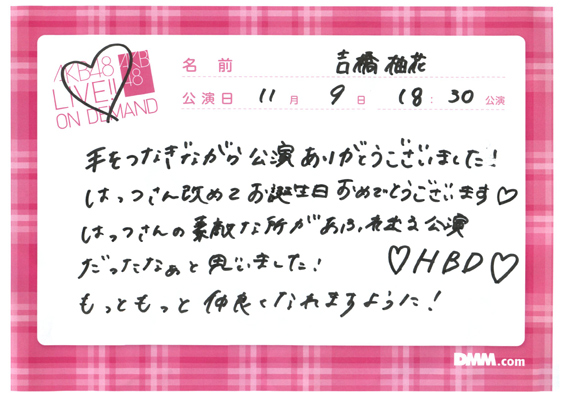 AKB48
LIVE!!
ON DEMAND
AKB
48
名 前 吉橋 柚花
公演日 11 月 9 日 18:30 公演
手をつなぎながら 公演 ありがとうございました!
はっつさん改めて お誕生日 おめでとうございます♡
はっつさんの 素敵な所が あふれまる公演
だったなぁと 思いました!
♡HBD♡
もっともっと 仲良くなれますように!
DMM.com